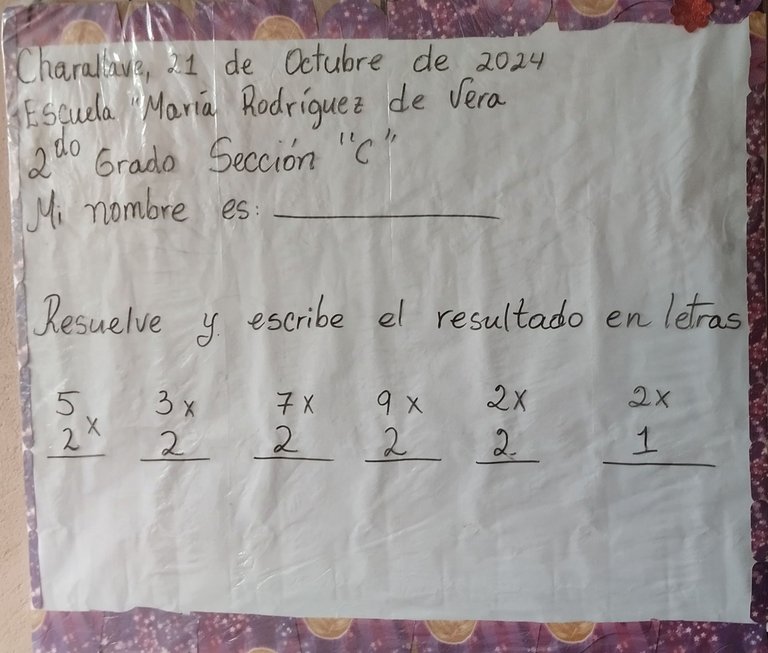 Charallave, 21 de Octubre de 2024
Escuela "María Rodríguez de Vera
2do Grado Sección "C"
Mi nombre es: ____________
Resuelve y escribe el resultado en letras
5 3x 7x 9x 2x 2x
2x 2 2 2 2 1